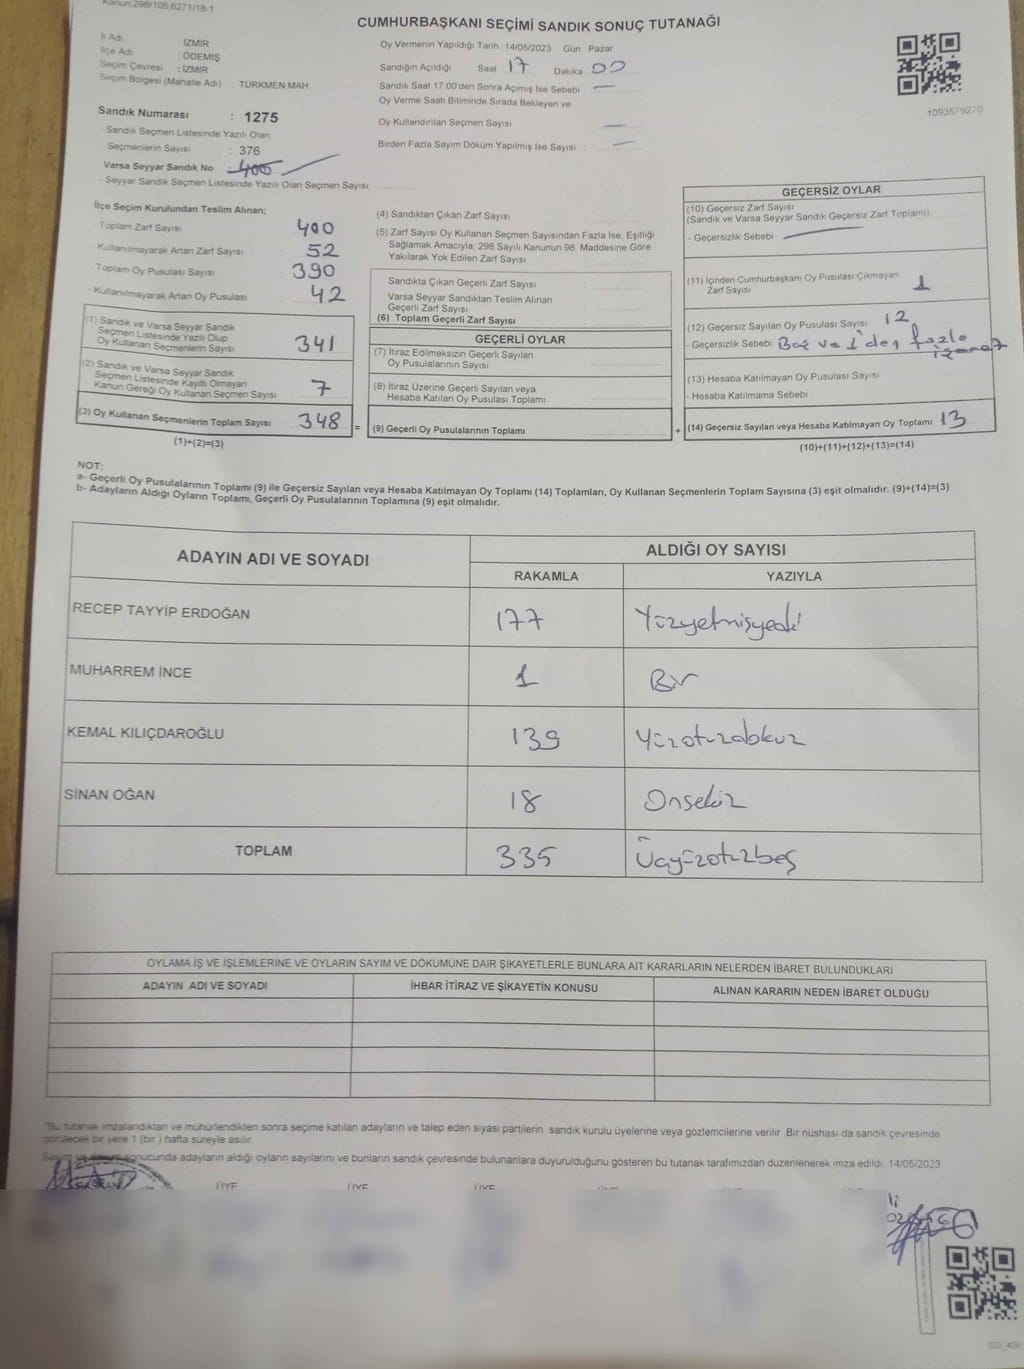 Kanun,298/105,6271/18-1
CUMHURBAŞKANI SEÇİMİ SANDIK SONUÇ TUTANAĞI
İl Adı : İZMİR
İlçe Adı : ÖDEMİŞ
Seçim Çevresi : İZMİR
Seçim Bölgesi (Mahalle Adı) : TÜRKMEN MAH.
Oy Vermenin Yapıldığı Tarih : 14/05/2023 Gün : Pazar
Sandığın Açıldığı Saat 17 Dakika 00
Sandık Saat 17:00'den Sonra Açımış İse Sebebi —
Oy Verme Saati Bitiminde Sırada Bekleyen ve
Oy Kullandırılan Seçmen Sayısı —
Birden Fazla Sayım Döküm Yapılmış İse Sayısı —
1093579270
Sandık Numarası : 1275
- Sandık Seçmen Listesinde Yazılı Olan
Seçmenlerin Sayısı : 376
Varsa Seyyar Sandık No 400
- Seyyar Sandık Seçmen Listesinde Yazılı Olan Seçmen Sayısı:
İlçe Seçim Kurulundan Teslim Alınan;
- Toplam Zarf Sayısı 400
- Kullanılmayarak Artan Zarf Sayısı 52
- Toplam Oy Pusulası Sayısı 390
- Kullanılmayarak Artan Oy Pusulası 42
(1) Sandık ve Varsa Seyyar Sandık
Seçmen Listesinde Yazılı Olup
Oy Kullanan Seçmenlerin Sayısı 341
(2) Sandık ve Varsa Seyyar Sandık
Seçmen Listesinde Kayıtlı Olmayan
Kanun Gereği Oy Kullanan Seçmen Sayısı 7
(3) Oy Kullanan Seçmenlerin Toplam Sayısı 348
(1)+(2)=(3)
(4) Sandıktan Çıkan Zarf Sayısı
(5) Zarf Sayısı Oy Kullanan Seçmen Sayısından Fazla İse, Eşitliği
Sağlamak Amacıyla; 298 Sayılı Kanunun 98. Maddesine Göre
Yakılarak Yok Edilen Zarf Sayısı
Sandıkta Çıkan Geçerli Zarf Sayısı
Varsa Seyyar Sandıktan Teslim Alınan
Geçerli Zarf Sayısı
(6) Toplam Geçerli Zarf Sayısı
GEÇERLİ OYLAR
(7) İtiraz Edilmeksizin Geçerli Sayılan
Oy Pusulalarının Sayısı
(8) İtiraz Üzerine Geçerli Sayılan veya
Hesaba Katılan Oy Pusulası Toplamı
= (9) Geçerli Oy Pusulalarının Toplamı +
GEÇERSİZ OYLAR
(10) Geçersiz Zarf Sayısı
(Sandık ve Varsa Seyyar Sandık Geçersiz Zarf Toplamı)
- Geçersizlik Sebebi
(11) İçinden Cumhurbaşkanı Oy Pusulası Çıkmayan
Zarf Sayısı 1
(12) Geçersiz Sayılan Oy Pusulası Sayısı 12
- Geçersizlik Sebebi Boş ve 1'den fazla
işaret
(13) Hesaba Katılmayan Oy Pusulası Sayısı
- Hesaba Katılmama Sebebi
(14) Geçersiz Sayılan veya Hesaba Katılmayan Oy Toplamı 13
(10)+(11)+(12)+(13)=(14)
NOT:
a- Geçerli Oy Pusulalarının Toplamı (9) ile Geçersiz Sayılan veya Hesaba Katılmayan Oy Toplamı (14) Toplamları, Oy Kullanan Seçmenlerin Toplam Sayısına (3) eşit olmalıdır. (9)+(14)=(3)
b- Adayların Aldığı Oyların Toplamı, Geçerli Oy Pusulalarının Toplamına (9) eşit olmalıdır.
ADAYIN ADI VE SOYADI ALDIĞI OY SAYISI
RAKAMLA YAZIYLA
RECEP TAYYİP ERDOĞAN 177 Yüzyetmişyedi
MUHARREM İNCE 1 Bir
KEMAL KILIÇDAROĞLU 139 Yüzotuzdokuz
SİNAN OĞAN 18 Onsekiz
TOPLAM 335 Üçyüzotuzbeş
OYLAMA İŞ VE İŞLEMLERİNE VE OYLARIN SAYIM VE DÖKÜMÜNE DAİR ŞİKAYETLERLE BUNLARA AİT KARARLARIN NELERDEN İBARET BULUNDUKLARI
ADAYIN ADI VE SOYADI İHBAR İTİRAZ VE ŞİKAYETİN KONUSU ALINAN KARARIN NEDEN İBARET OLDUĞU
*Bu tutanak imzalandıktan ve mühürlendikten sonra seçime katılan adayların ve talep eden siyasi partilerin sandık kurulu üyelerine veya gözlemcilerine verilir. Bir nüshası da sandık çevresinde
görülecek bir yere 1 (bir) hafta süreyle asılır.
Sayım ve döküm sonucunda adayların aldığı oyların sayılarını ve bunların sandık çevresinde bulunanlara duyurulduğunu gösteren bu tutanak tarafımızdan düzenlenerek imza edildi. 14/05/2023
BAŞKAN ÜYE ÜYE ÜYE